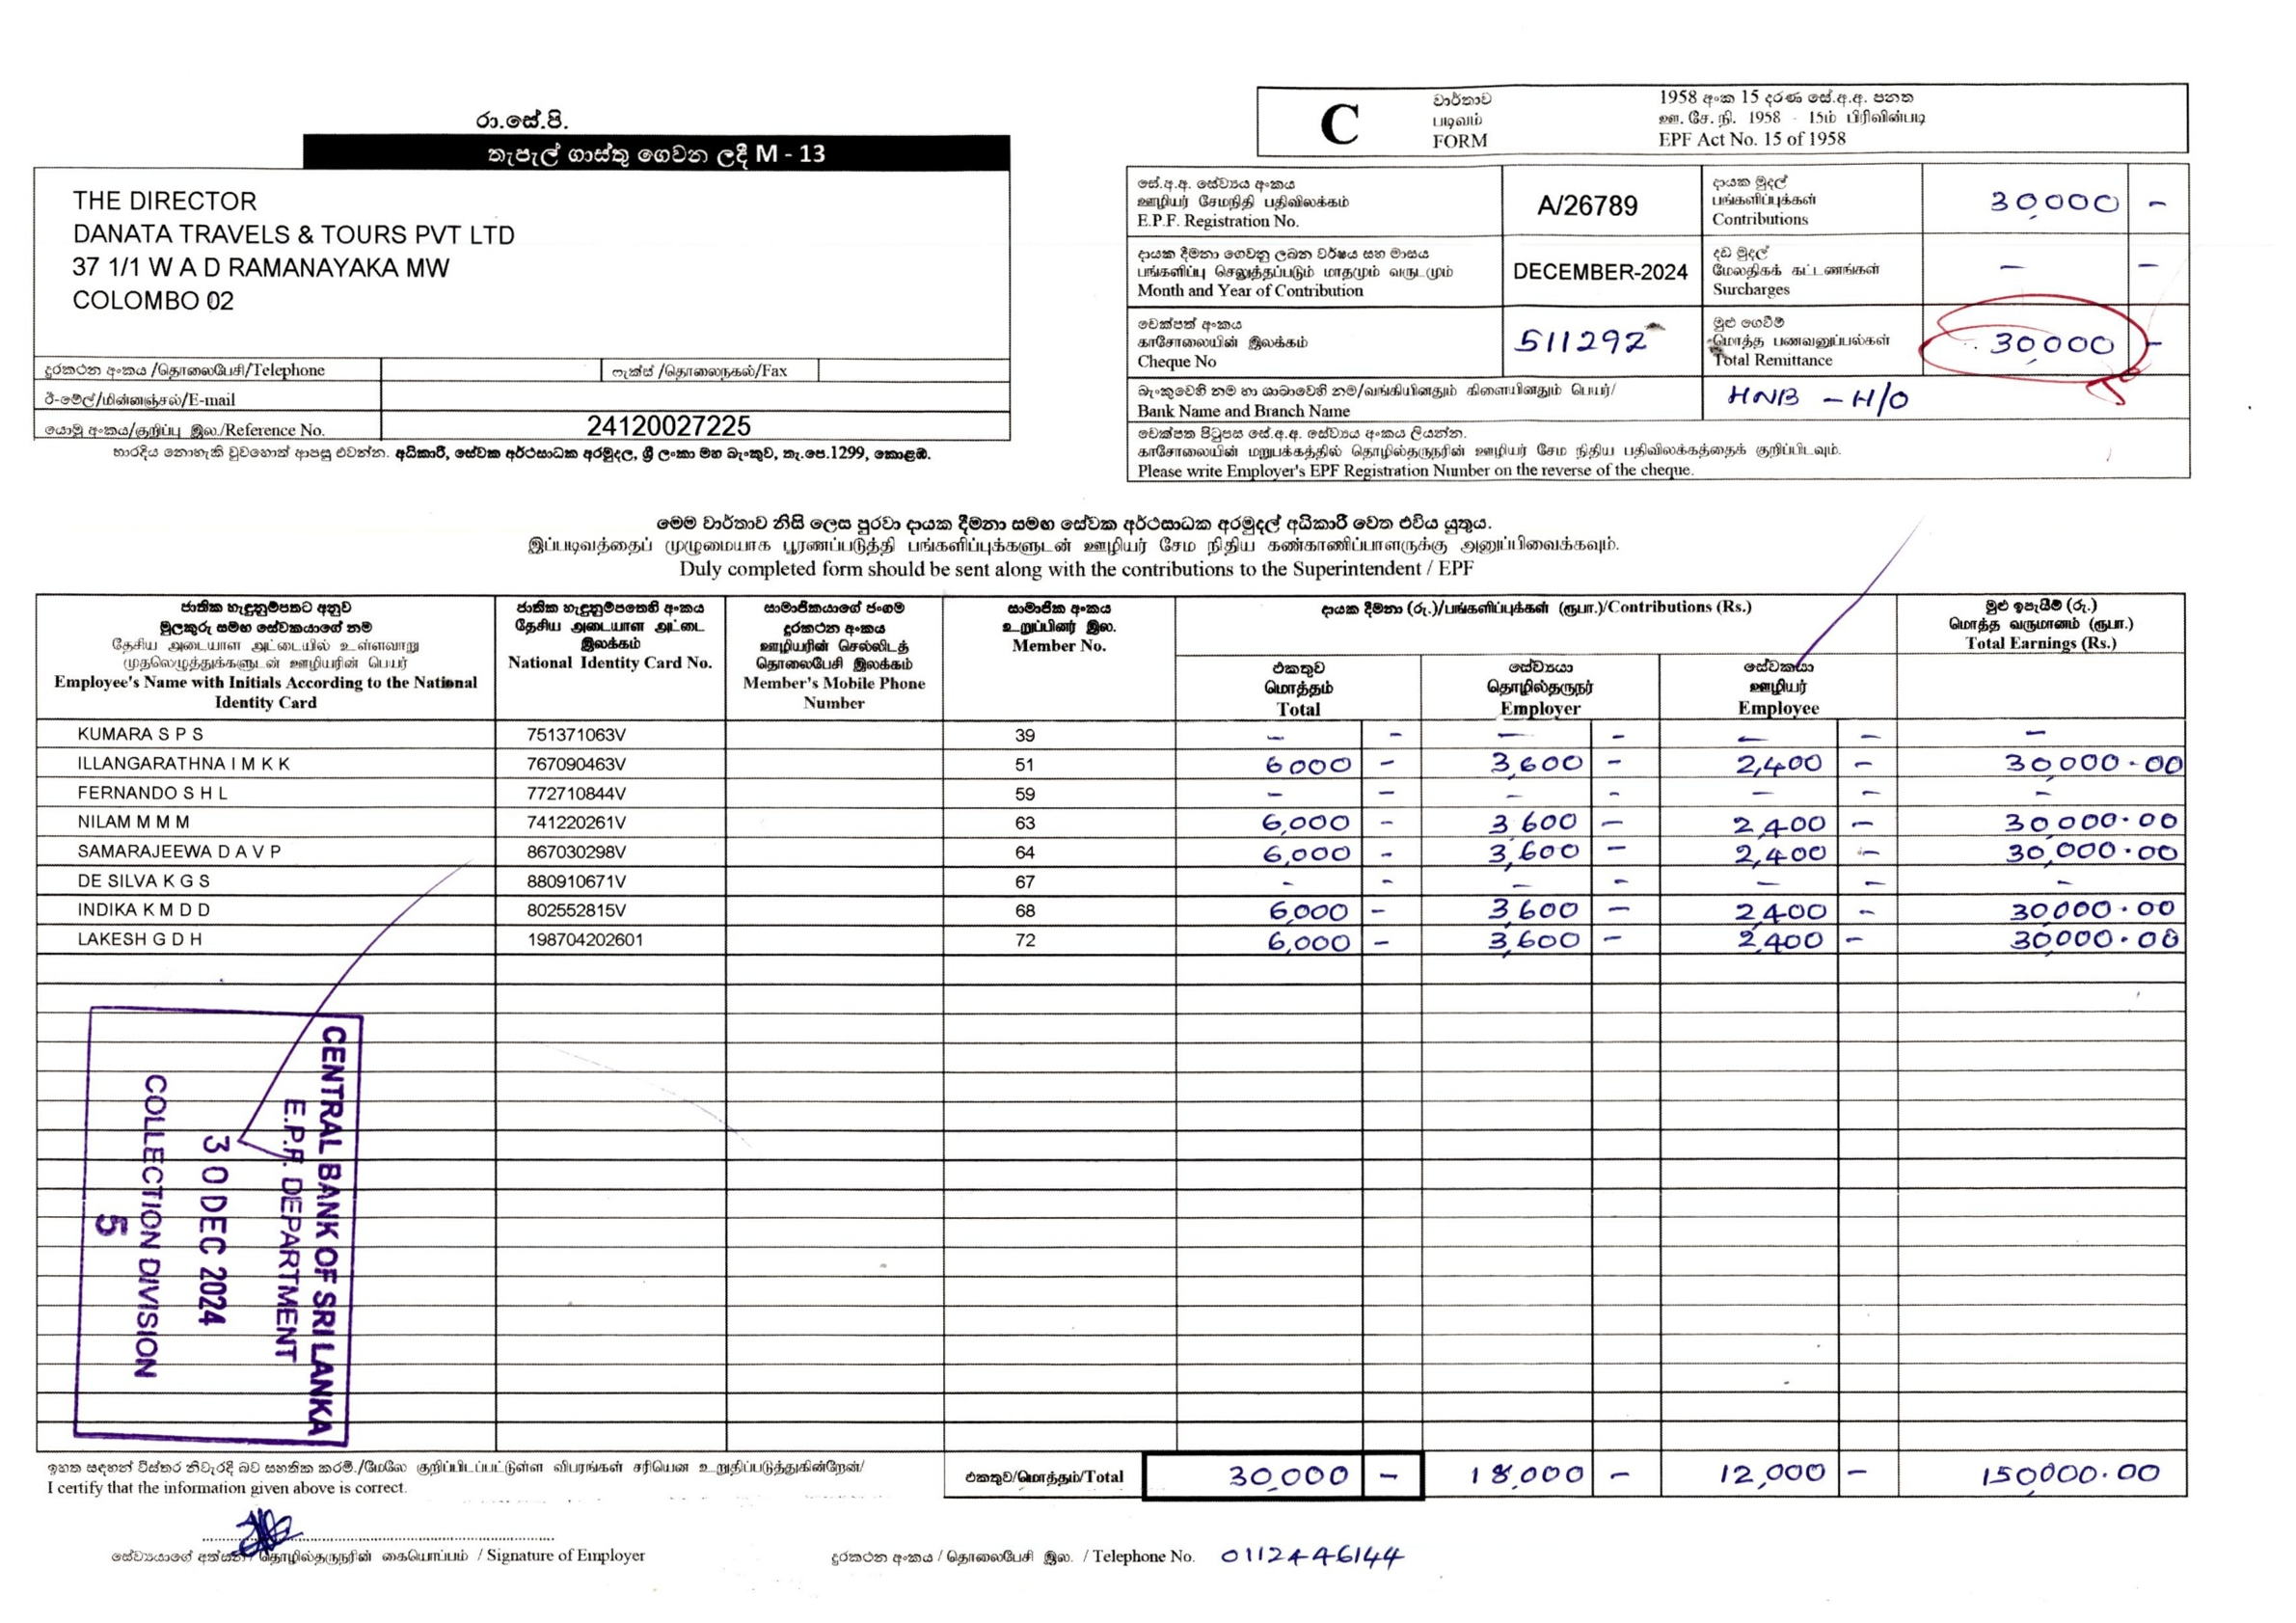 රා.සේ.පි.
තැපැල් ගාස්තු ගෙවන ලදී M - 13
THE DIRECTOR
DANATA TRAVELS & TOURS PVT LTD
37 1/1 W A D RAMANAYAKA MW
COLOMBO 02
දුරකථන අංකය /தொலைபேசி/Telephone
ෆැක්ස් /தொலைநகல்/Fax
ඊ-මේල්/மின்னஞ்சல்/E-mail
යොමු අංකය/குறிப்பு இல./Reference No. 24120027225
භාරදිය නොහැකි වුවහොත් ආපසු එවන්න. අධිකාරී, සේවක අර්ථසාධක අරමුදල, ශ්‍රී ලංකා මහ බැංකුව, තැ.පෙ.1299, කොළඹ.
C
වාර්තාව
படிவம்
FORM
1958 අංක 15 දරණ සේ.අ.අ. පනත
ஊ. சே. நி. 1958 - 15ம் பிரிவின்படி
EPF Act No. 15 of 1958
සේ.අ.අ. සේව්‍යය අංකය
ஊழியர் சேமநிதி பதிவிலக்கம்
E.P.F. Registration No.
A/26789
දායක මුදල්
பங்களிப்புக்கள்
Contributions
30,000 -
දායක දීමනා ගෙවනු ලබන වර්ෂය සහ මාසය
பங்களிப்பு செலுத்தப்படும் மாதமும் வருடமும்
Month and Year of Contribution
DECEMBER-2024
දඩ මුදල්
மேலதிகக் கட்டணங்கள்
Surcharges
- -
චෙක්පත් අංකය
காசோலையின் இலக்கம்
Cheque No
511292
මුළු ගෙවීම්
மொத்த பணவனுப்பல்கள்
Total Remittance
30,000 -
බැංකුවෙහි නම හා ශාඛාවෙහි නම/வங்கியினதும் கிளையினதும் பெயர்/
Bank Name and Branch Name
HNB - H/O
චෙක්පත පිටුපස සේ.අ.අ. සේව්‍යය අංකය ලියන්න.
காசோலையின் மறுபக்கத்தில் தொழில்தருநரின் ஊழியர் சேம நிதிய பதிவிலக்கத்தைக் குறிப்பிடவும்.
Please write Employer's EPF Registration Number on the reverse of the cheque.
මෙම වාර්තාව නිසි ලෙස පුරවා දායක දීමනා සමඟ සේවක අර්ථසාධක අරමුදල් අධිකාරී වෙත එවිය යුතුය.
இப்படிவத்தைப் முழுமையாக பூரணப்படுத்தி பங்களிப்புக்களுடன் ஊழியர் சேம நிதிய கண்காணிப்பாளருக்கு அனுப்பிவைக்கவும்.
Duly completed form should be sent along with the contributions to the Superintendent / EPF
ජාතික හැඳුනුම්පතට අනුව
මුලකුරු සමඟ සේවකයාගේ නම
தேசிய அடையாள அட்டையில் உள்ளவாறு
முதலெழுத்துக்களுடன் ஊழியரின் பெயர்
Employee's Name with Initials According to the National
Identity Card
ජාතික හැඳුනුම්පතෙහි අංකය
தேசிய அடையாள அட்டை
இலக்கம்
National Identity Card No.
සාමාජිකයාගේ ජංගම
දුරකථන අංකය
ஊழியரின் செல்லிடத்
தொலைபேசி இலக்கம்
Member's Mobile Phone
Number
සාමාජික අංකය
உறுப்பினர் இல.
Member No.
දායක දීමනා (රු.)/பங்களிப்புக்கள் (ரூபா.)/Contributions (Rs.)
එකතුව
மொத்தம்
Total
සේව්‍යයා
தொழில்தருநர்
Employer
සේවකයා
ஊழியர்
Employee
මුළු ඉපැයීම් (රු.)
மொத்த வருமானம் (ரூபா.)
Total Earnings (Rs.)
KUMARA S P S 751371063V 39 - - - - - - -
ILLANGARATHNA I M K K 767090463V 51 6000 - 3,600 - 2,400 - 30,000.00
FERNANDO S H L 772710844V 59 - - - - - - -
NILAM M M M 741220261V 63 6,000 - 3,600 - 2,400 - 30,000.00
SAMARAJEEWA D A V P 867030298V 64 6,000 - 3,600 - 2,400 - 30,000.00
DE SILVA K G S 880910671V 67 - - - - - - -
INDIKA K M D D 802552815V 68 6,000 - 3,600 - 2,400 - 30,000.00
LAKESH G D H 198704202601 72 6,000 - 3,600 - 2,400 - 30,000.00
CENTRAL BANK OF SRI LANKA
E.P.F. DEPARTMENT
30 DEC 2024
COLLECTION DIVISION
5
ඉහත සඳහන් විස්තර නිවැරදි බව සහතික කරමි./மேலே குறிப்பிடப்பட்டுள்ள விபரங்கள் சரியென உறுதிப்படுத்துகின்றேன்/
I certify that the information given above is correct.
එකතුව/மொத்தம்/Total 30,000 - 18,000 - 12,000 - 150,000.00
සේව්‍යයාගේ අත්සන / தொழில்தருநரின் கையொப்பம் / Signature of Employer
දුරකථන අංකය / தொலைபேசி இல. / Telephone No. 0112446144